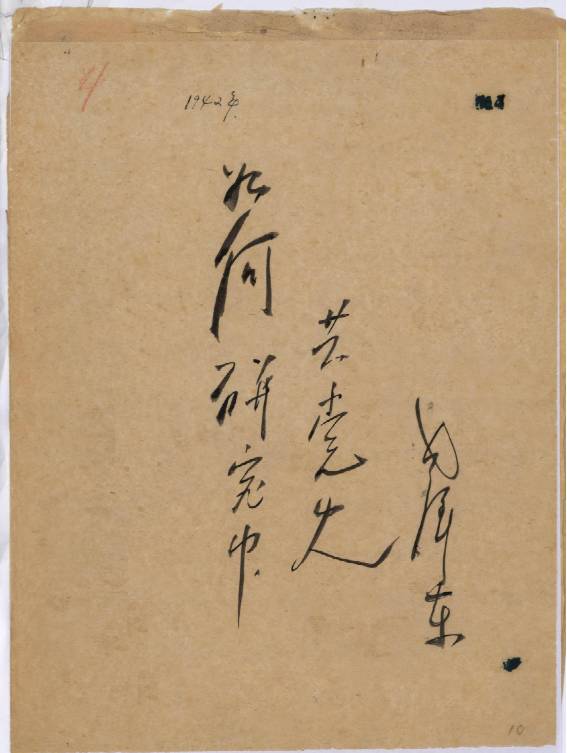 4
1942年
如何研究中
共党史
毛泽东
10